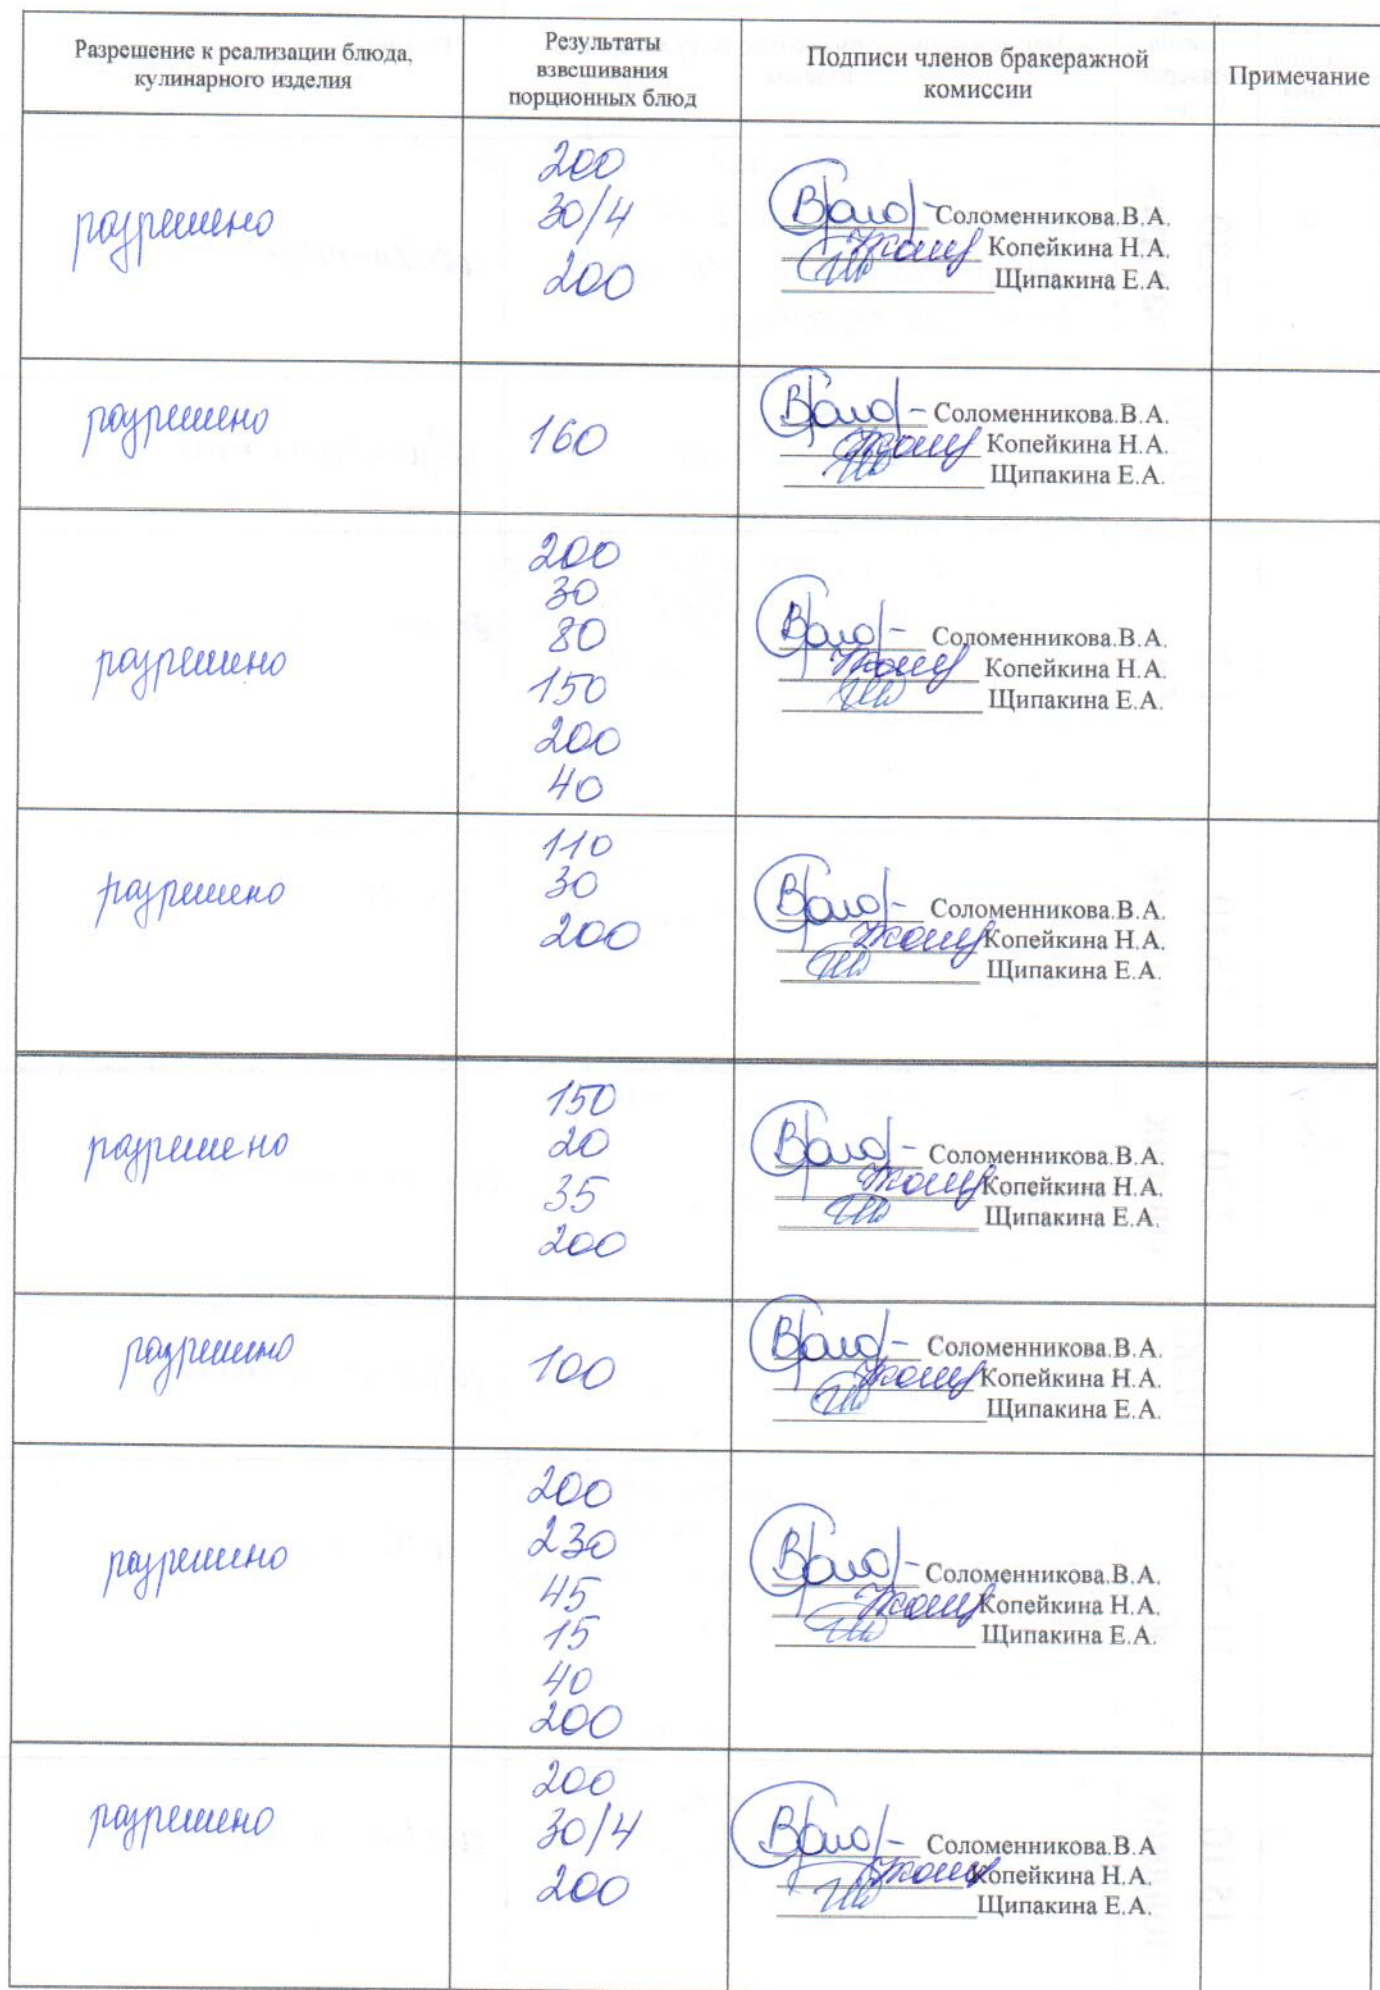 Разрешение к реализации блюда,
кулинарного изделия
Результаты
взвешивания
порционных блюд
Подписи членов бракеражной
комиссии
Примечание
разрешено
200
30/4
200
Соломенникова.В.А.
Копейкина Н.А.
Щипакина Е.А.
разрешено
160
Соломенникова.В.А.
Копейкина Н.А.
Щипакина Е.А.
разрешено
200
30
80
150
200
40
Соломенникова.В.А.
Копейкина Н.А.
Щипакина Е.А.
разрешено
110
30
200
Соломенникова.В.А.
Копейкина Н.А.
Щипакина Е.А.
разрешено
150
20
35
200
Соломенникова.В.А.
Копейкина Н.А.
Щипакина Е.А.
разрешено
100
Соломенникова.В.А.
Копейкина Н.А.
Щипакина Е.А.
разрешено
200
230
45
15
40
200
Соломенникова.В.А.
Копейкина Н.А.
Щипакина Е.А.
разрешено
200
30/4
200
Соломенникова.В.А
Копейкина Н.А.
Щипакина Е.А.